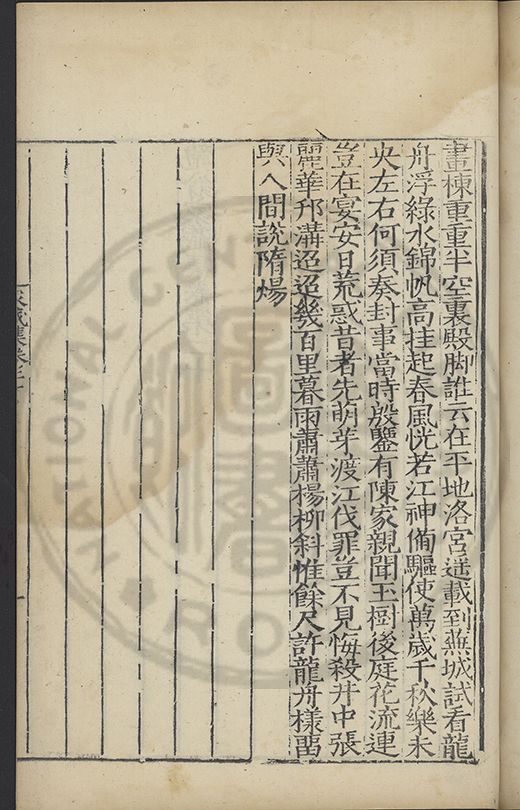 畫棟重重半空裏殿脚誰云在平地洛宮遥載到蕪城試看龍
舟浮綠水錦帆高挂起春風恍若江神備驅使萬歲千秋樂未
央左右何須奏封事當時殷鑒有陳家親聞玉樹後庭花流連
豈在宴安日荒惑昔者先萌芽渡江伐罪豈不見悔殺井中張
麗華邗溝迢迢幾百里暮雨蕭蕭楊柳斜惟餘尺許龍舟樣畱
與人間說隋煬
集卷